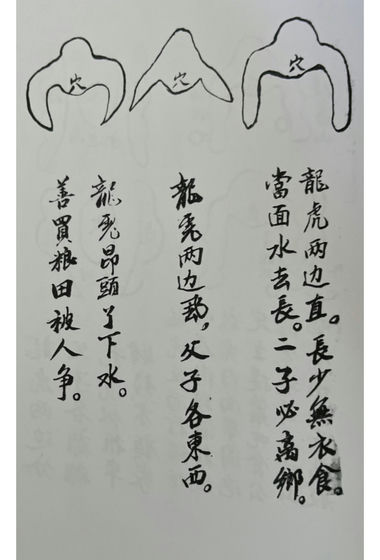 穴
穴
穴
龍虎两边直。長少無衣食。
當面水去長。二子必离鄉。
龍虎两边動。父子各東西。
龍虎昂頭了下水。
善買粮田被人争。